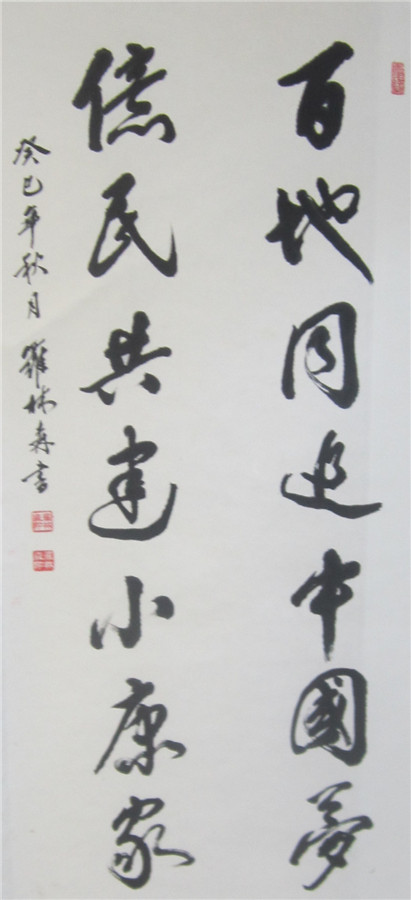 百地同追中國夢
億民共建小康家
癸巳年秋月 羅林森書